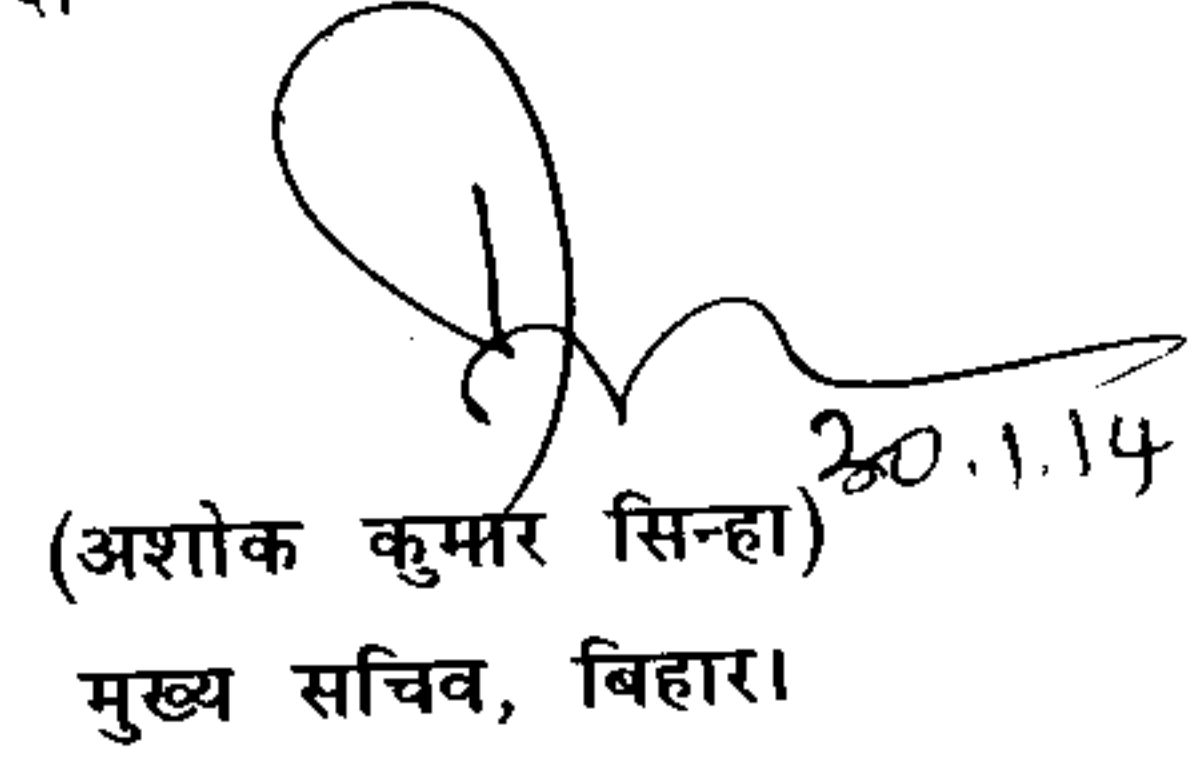 30.1.14
(अशोक कुमार सिन्हा)
मुख्य सचिव, बिहार।